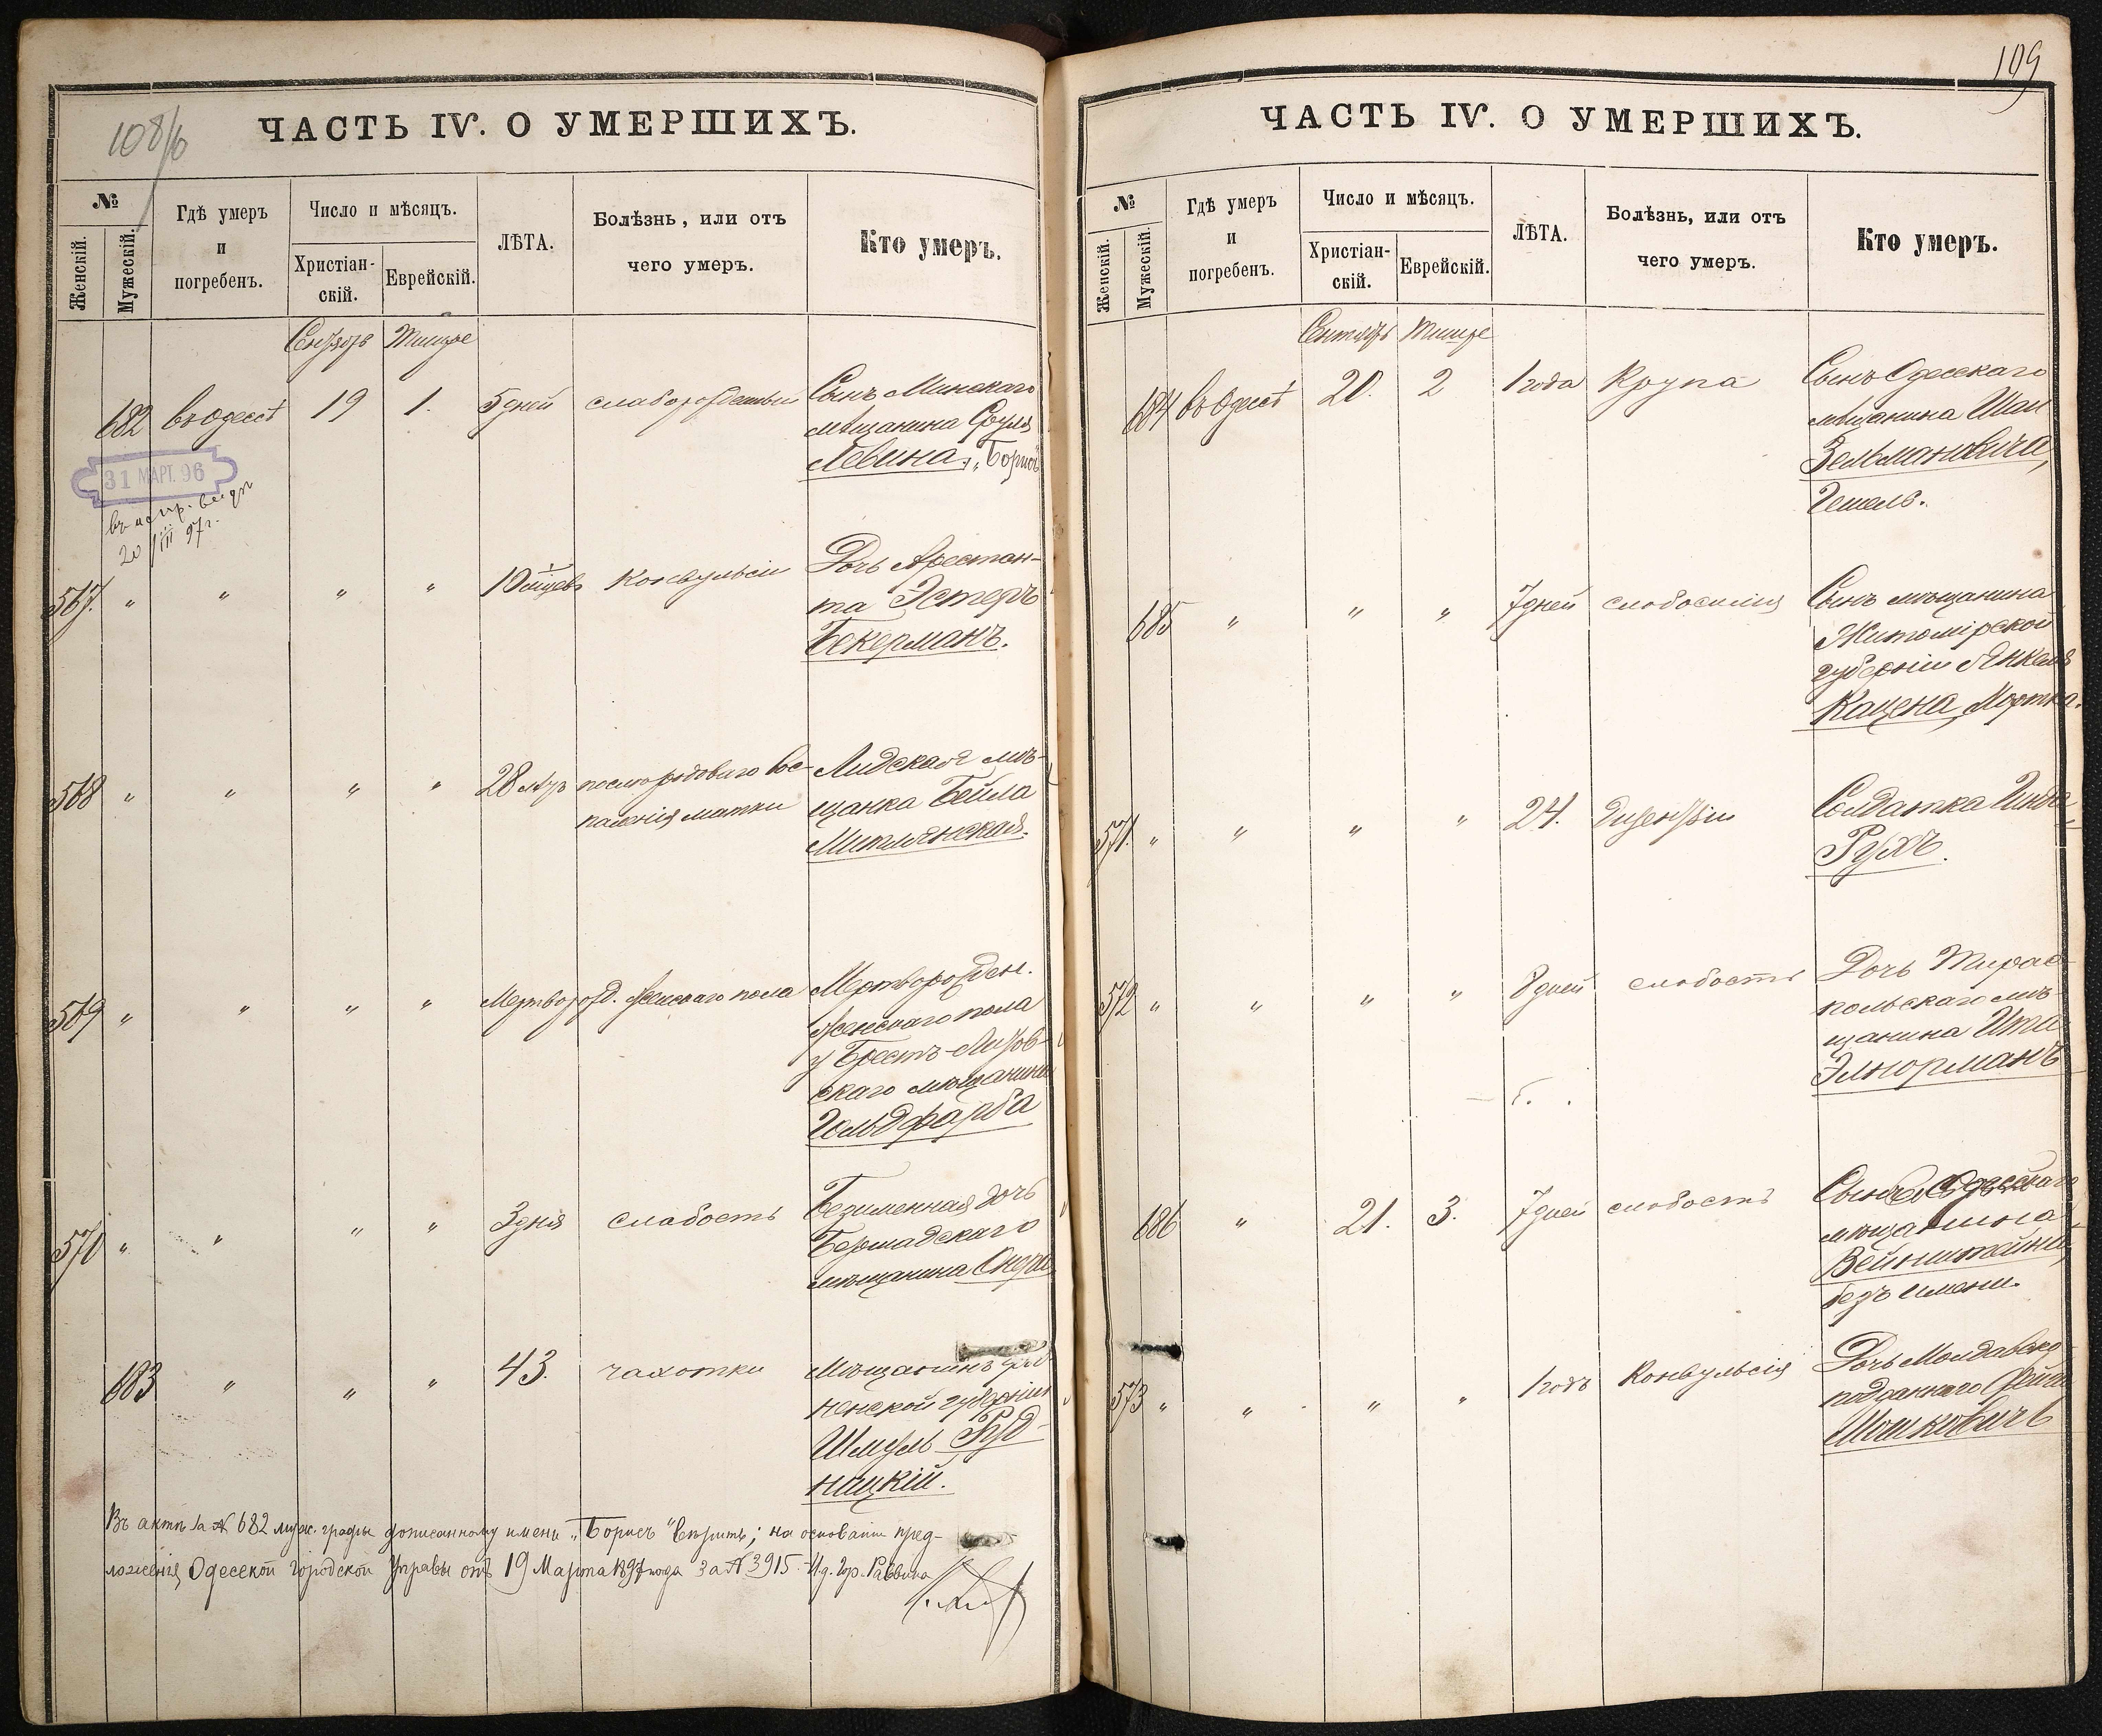 108/б
ЧАСТЬ IV. О УМЕРШИХЪ.
№
Женскій.
Мужескій.
Гдѣ умеръ
и
погребенъ.
Число и мѣсяцъ.
Христіан-
скій.
Еврейскій.
ЛѢТА.
Болѣзнь, или отъ
чего умеръ.
Кто умеръ.
Тишре
682 въ Одессѣ 19 1. 5 дней Сынъ Минскаго
мѣщанина Сруля
Левина, „Борисъ
31 МАРТ. 96
20/III 97 г.
567. " " " " 10 мѣсц. Конвульсіи Дочь Арестан-
та Эстеръ
Бекерманъ.
568 " " " " 28 лѣтъ послѣродоваго вос- Лидская мѣ-
паленія матки щанка Бейла
569 " " " " Мертворожд. женскаго пола Мертворожден.
женскаго пола
у Брестъ-Литов-
скаго мѣщанина
Гольдфарба
570 " " " " 3 дня слабость Безименная дочь
Бершадскаго
мѣщанина
683 " " " 43. чахотки Мѣщанинъ Грод-
ненской губерніи
Шмуль Руд-
ницкій.
Въ актѣ за № 682 муж. графы дописанному имени „Борисъ" вѣрить; на основаніи пред-
ложенія Одесской Городской Управы отъ 19 Марта 1897 года за № 3915. И.д. Гор. Раввина
109
ЧАСТЬ IV. О УМЕРШИХЪ.
№
Женскій.
Мужескій.
Гдѣ умеръ
и
погребенъ.
Число и мѣсяцъ.
Христіан-
скій.
Еврейскій.
ЛѢТА.
Болѣзнь, или отъ
чего умеръ.
Кто умеръ.
Сентябрь Тишре
684 въ Одессѣ 20. 2 1 года Крупа Сынъ Одесскаго
мѣщанина
Зельмановича,
Гешель.
685 " " " 7 дней слабосилія Сынъ мѣщанина
Житомірской
губерніи Янкеля
Кацена, Мортка.
571. " " " " 24. Солдатка
Рухъ.
572 " " " " 8 дней слабость Дочь Тирас-
польскаго мѣ-
щанина Ита
686 " 21. 3. 7 дней слабость Сынъ Одесскаго
мѣщанина
Вейнштейна,
безъ имени.
573 " " " " 1 годъ Конвульсія Дочь Молдавско-
подданнаго Фейга
Мошковичъ